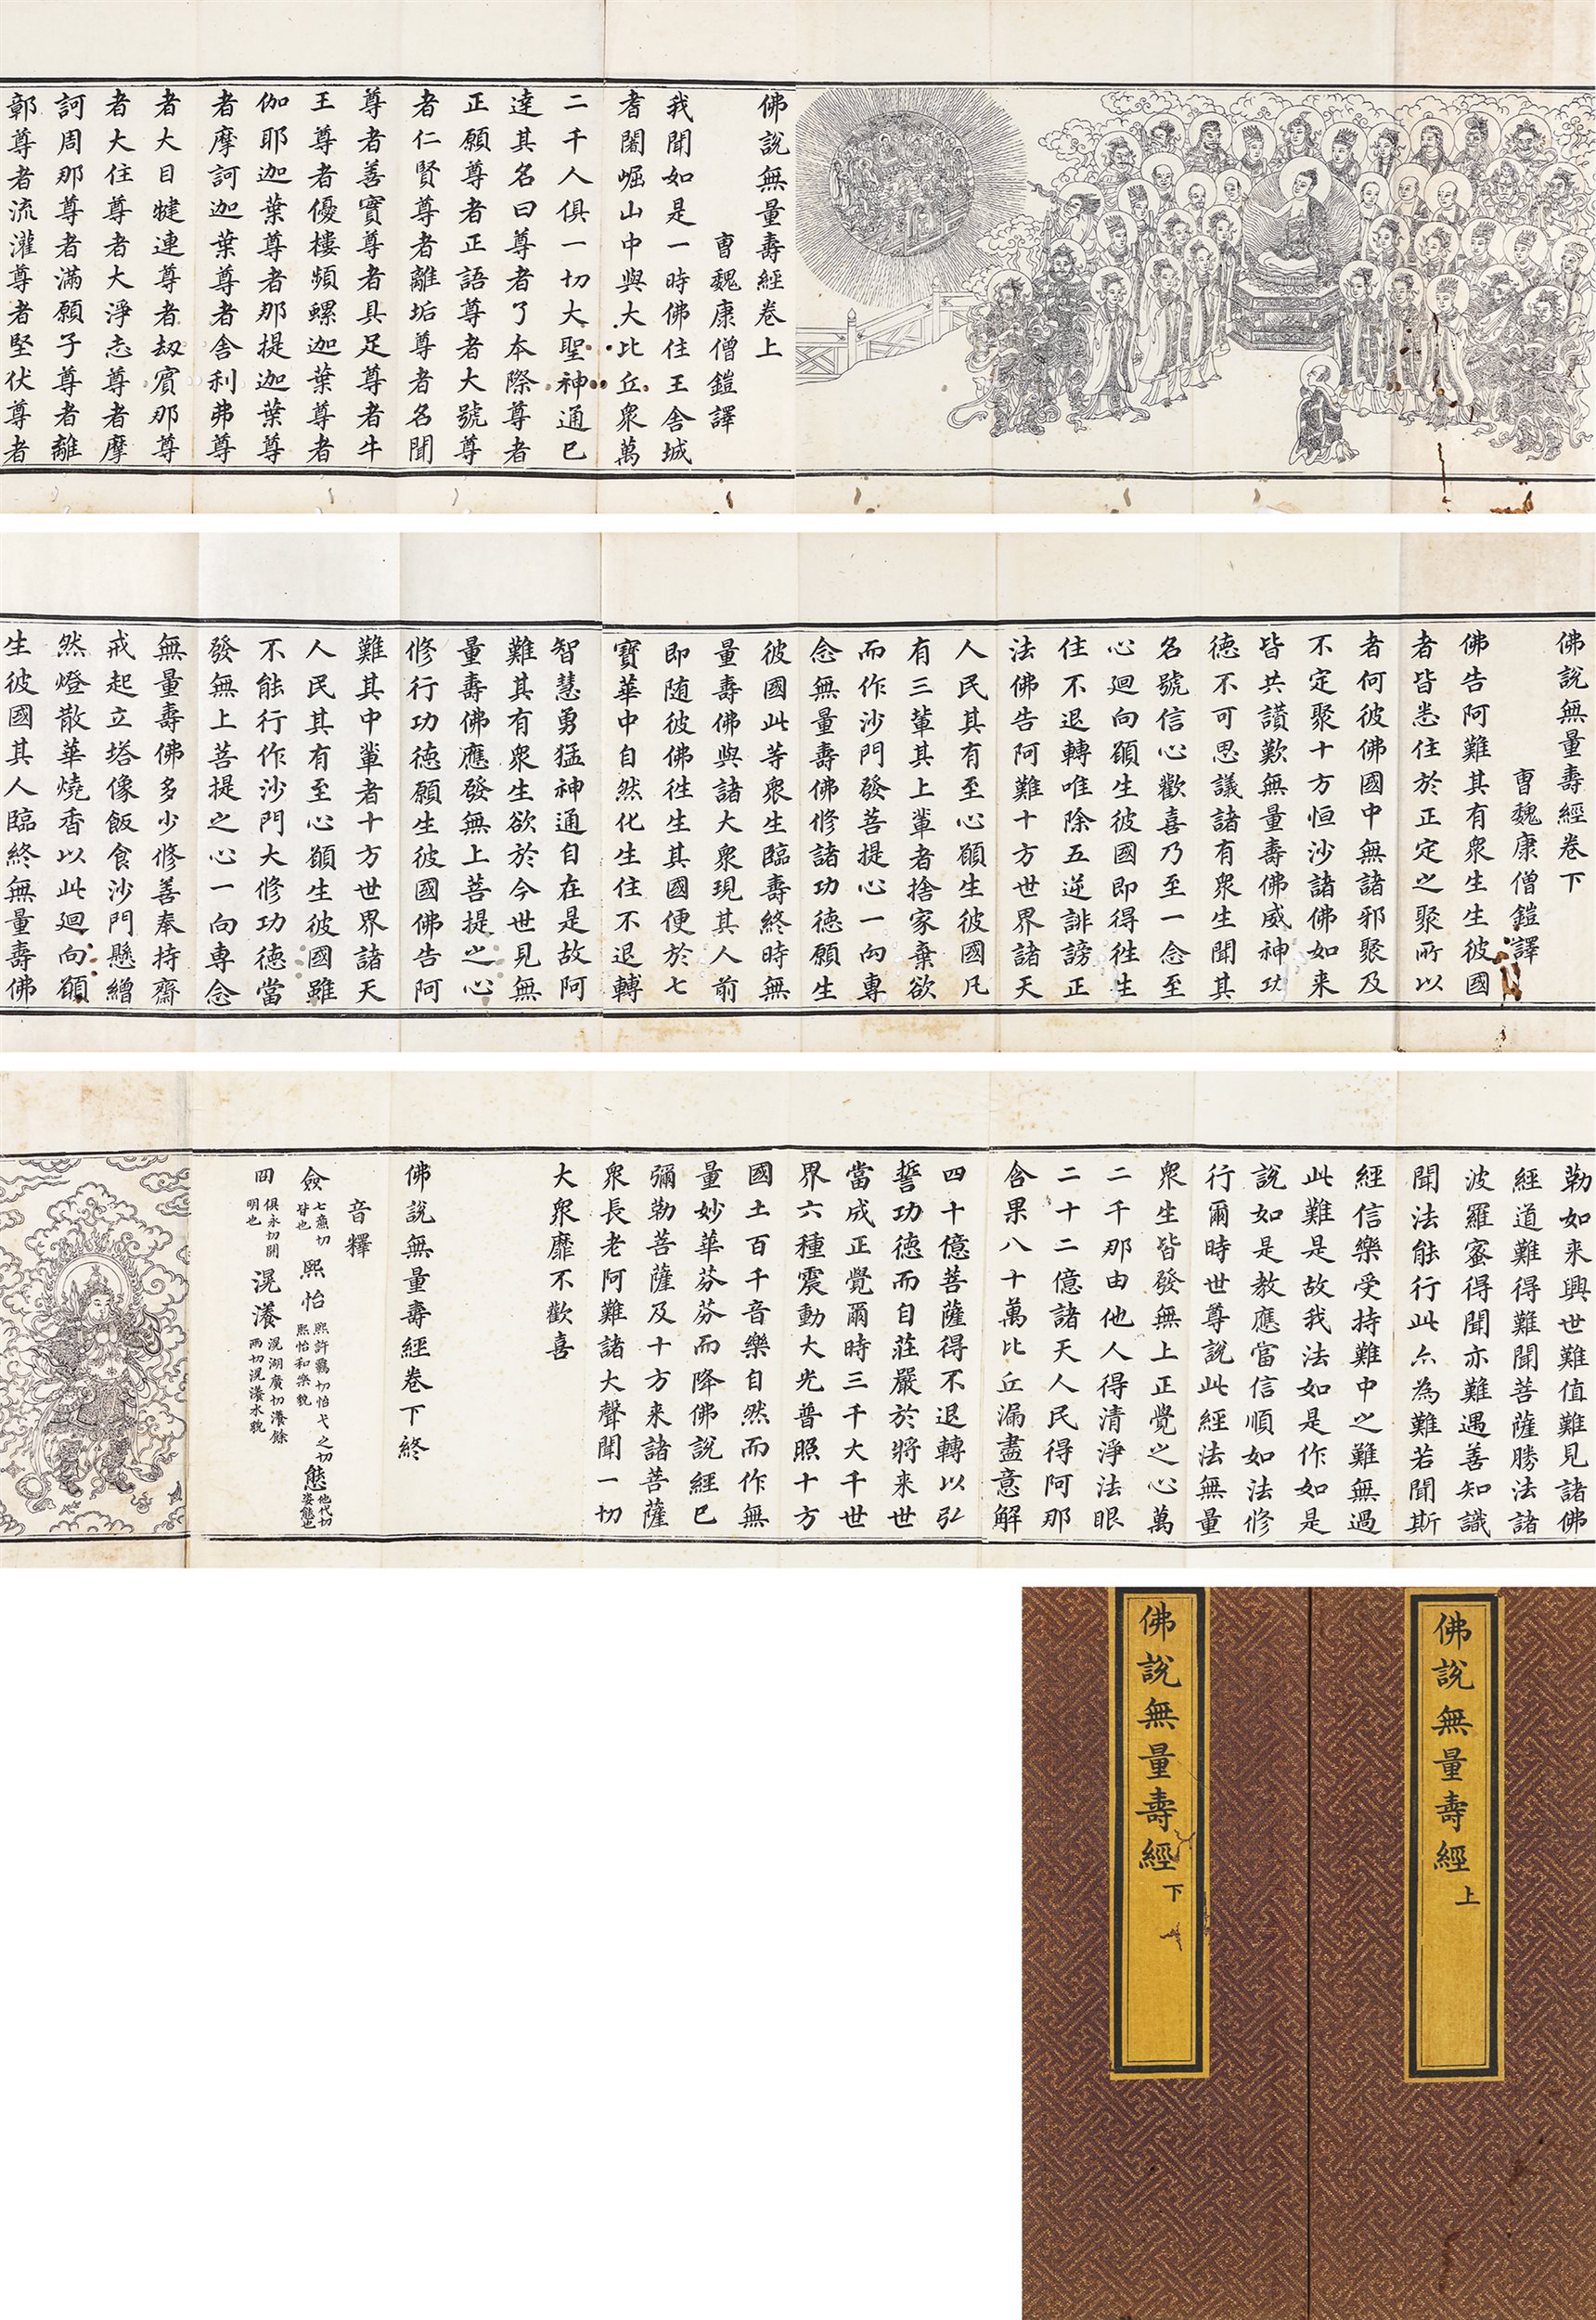 佛說無量壽經卷上
曹魏康僧鎧譯
我聞如是一時佛住王舍城
耆闍崛山中與大比丘衆萬
二千人俱一切大聖神通已
達其名曰尊者了本際尊者
正願尊者正語尊者大號尊
者仁賢尊者離垢尊者名聞
尊者善實尊者具足尊者牛
王尊者優樓頻螺迦葉尊者
伽耶迦葉尊者那提迦葉尊
者摩訶迦葉尊者舍利弗尊
者大目犍連尊者劫賓那尊
者大住尊者大淨志尊者摩
訶周那尊者滿願子尊者離
鄣尊者流灌尊者堅伏尊者
佛說無量壽經卷下
曹魏康僧鎧譯
佛告阿難其有衆生生彼國
者皆悉住於正定之聚所以
者何彼佛國中無諸邪聚及
不定聚十方恒沙諸佛如来
皆共讚歎無量壽佛威神功
德不可思議諸有衆生聞其
名號信心歡喜乃至一念至
心迴向願生彼國即得徃生
住不退轉唯除五逆誹謗正
法佛告阿難十方世界諸天
人民其有至心願生彼國凡
有三輩其上輩者捨家棄欲
而作沙門發菩提心一向專
念無量壽佛修諸功德願生
彼國此等衆生臨壽終時無
量壽佛與諸大衆現其人前
即随彼佛徃生其國便於七
寶華中自然化生住不退轉
智慧勇猛神通自在是故阿
難其有衆生欲於今世見無
量壽佛應發無上菩提之心
修行功德願生彼國佛告阿
難其中輩者十方世界諸天
人民其有至心願生彼國雖
不能行作沙門大修功德當
發無上菩提之心一向專念
無量壽佛多少修善奉持齋
戒起立塔像飯食沙門懸繒
然燈散華燒香以此迴向願
生彼國其人臨終無量壽佛
勒如来興世難值難見諸佛
經道難得難聞菩薩勝法諸
波羅蜜得聞亦難遇善知識
聞法能行此亦為難若聞斯
經信樂受持難中之難無過
此難是故我法如是作如是
說如是教應當信順如法修
行爾時世尊說此經法無量
衆生皆發無上正覺之心萬
二千那由他人得清淨法眼
二十二億諸天人民得阿那
含果八十萬比丘漏盡意解
四十億菩薩得不退轉以弘
誓功德而自莊嚴於將来世
當成正覺爾時三千大千世
界六種震動大光普照十方
國土百千音樂自然而作無
量妙華芬芬而降佛說經已
彌勒菩薩及十方来諸菩薩
衆長老阿難諸大聲聞一切
大衆靡不歡喜
佛說無量壽經卷下終
音釋
僉 七廉切 皆也 熙怡 熙許羈切怡弋之切 熙怡和樂貌 態 他代切 姿態也
冏 俱永切開 明也 滉瀁 滉湖廣切瀁餘 兩切滉瀁水貌
佛說無量壽經 上
佛說無量壽經 下